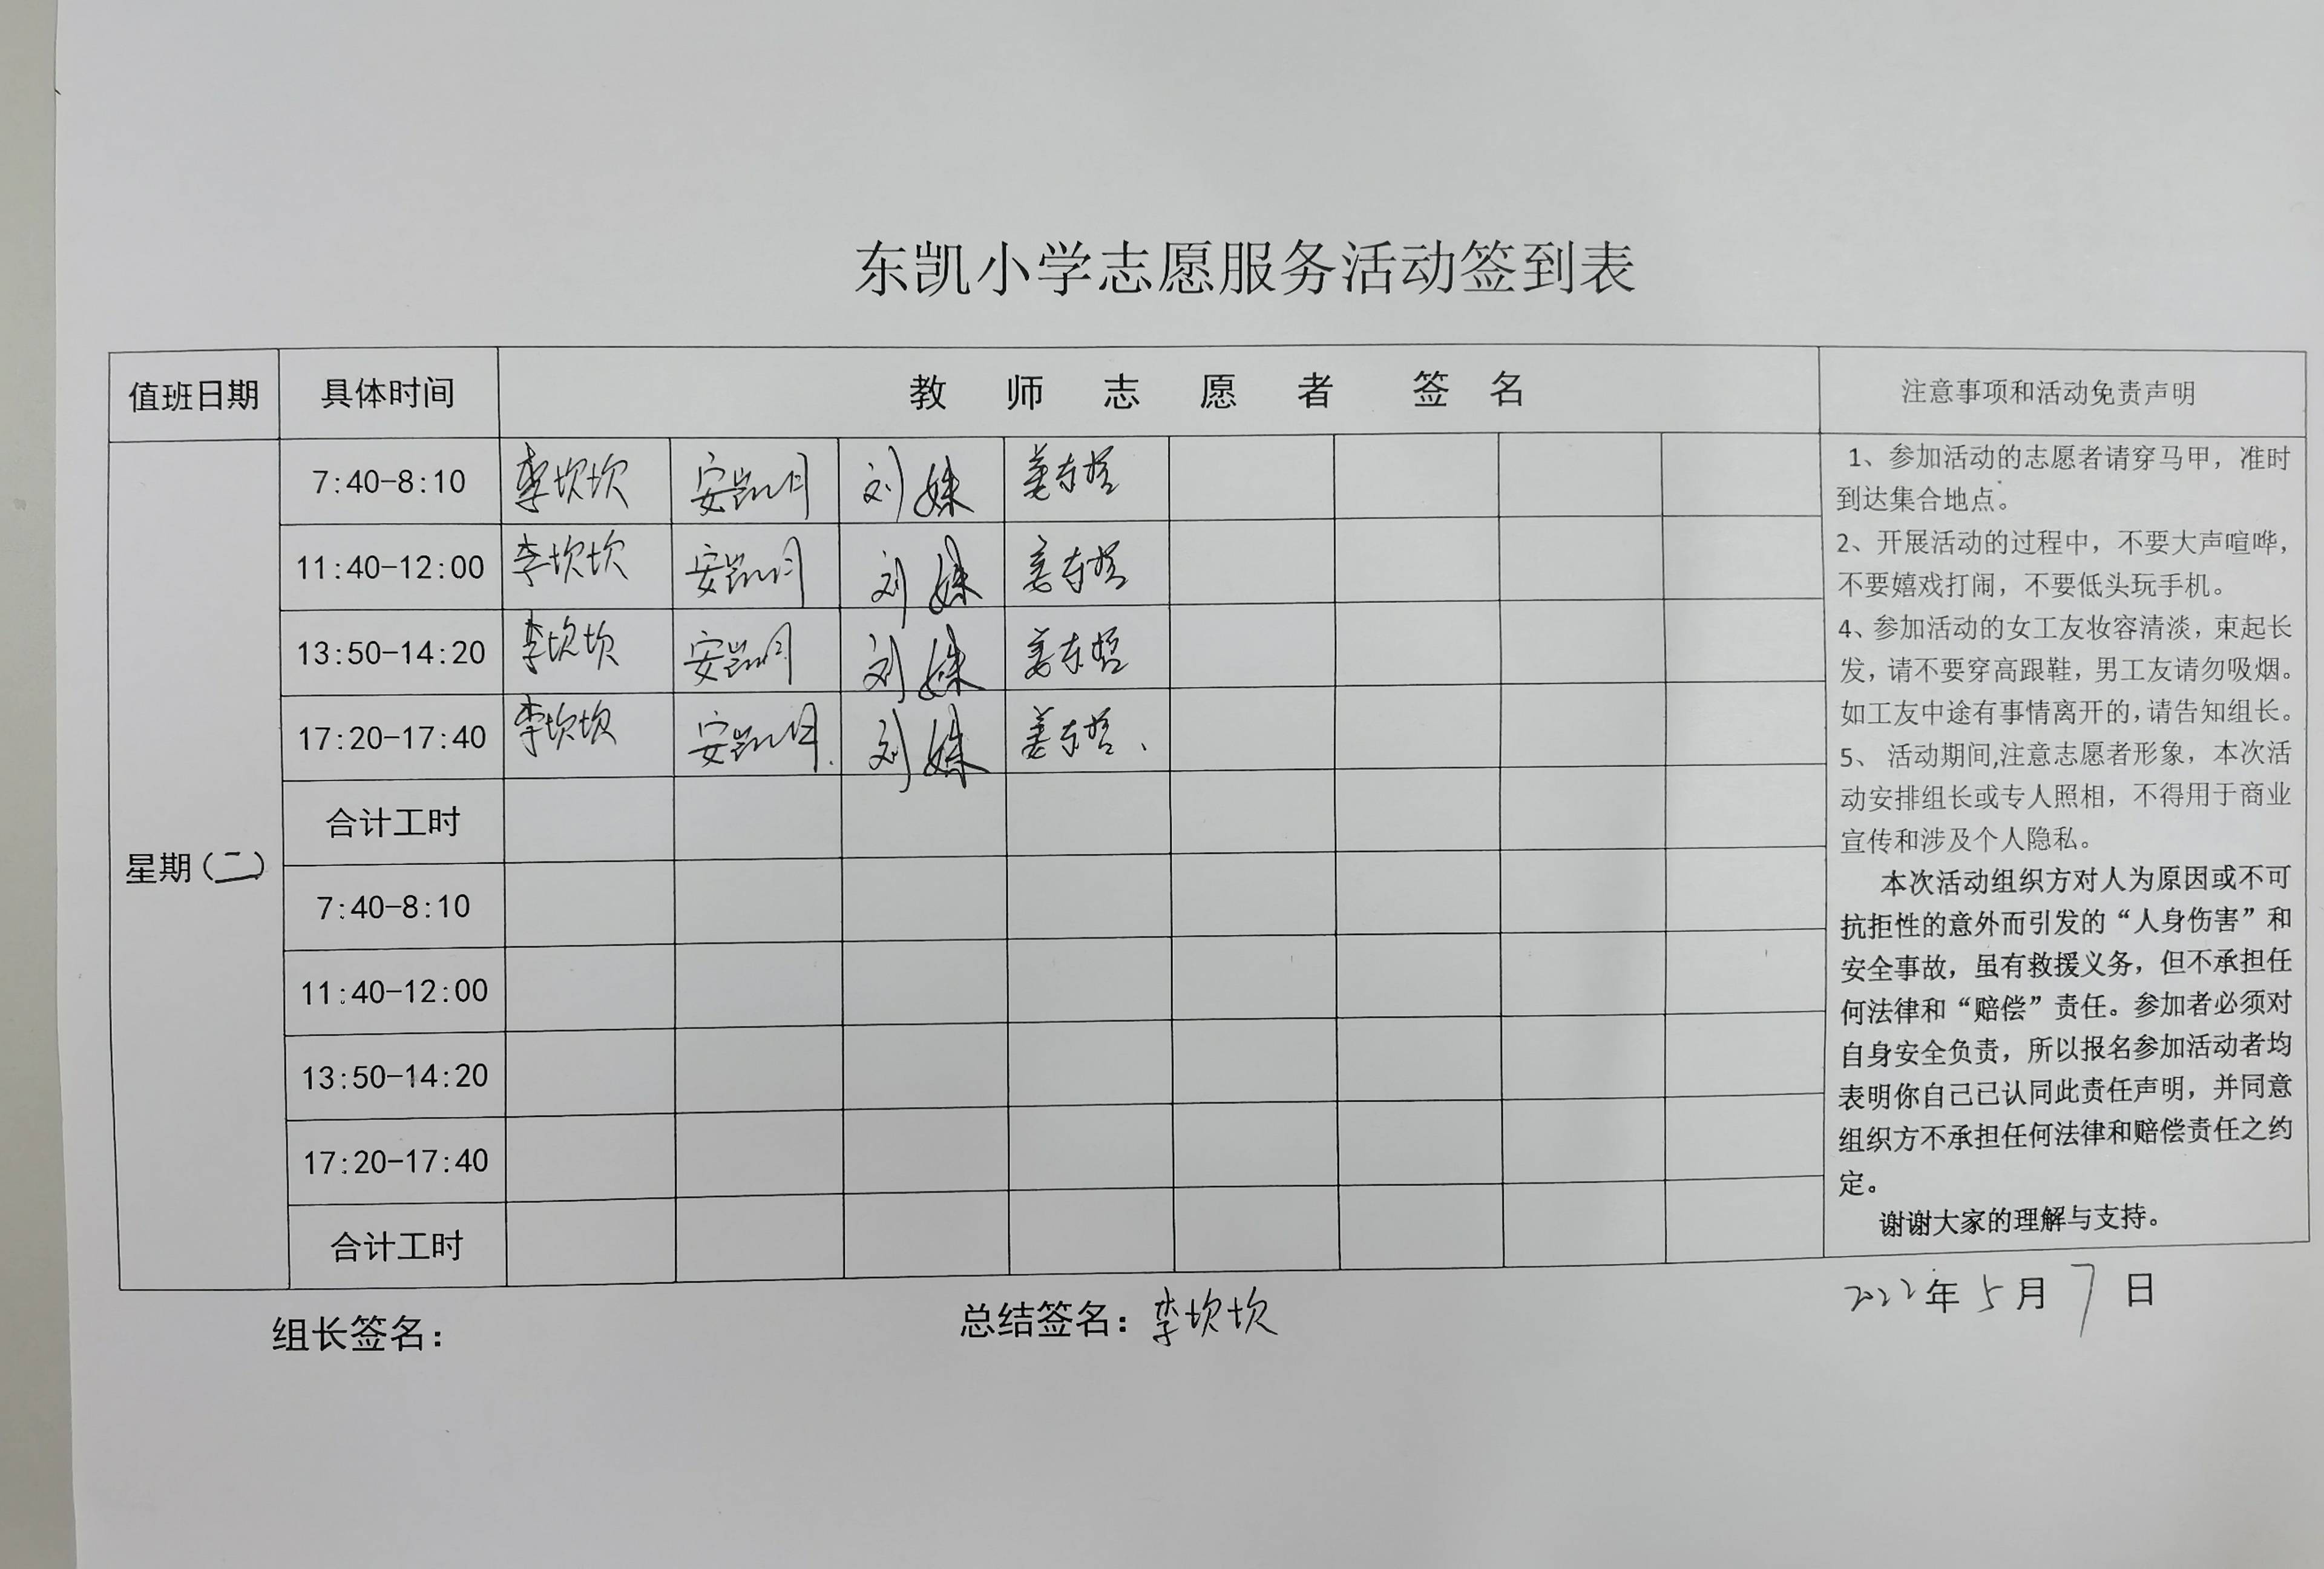 东凯小学志愿服务活动签到表
值班日期 具体时间 教师志愿者 签名 注意事项和活动免责声明
星期(二)
7:40-8:10 李坎坎 安凯月 刘姝
11:40-12:00 李坎坎 安凯月 刘姝
13:50-14:20 李坎坎 安凯月 刘姝
17:20-17:40 李坎坎 安凯月 刘姝
合计工时
7:40-8:10
11:40-12:00
13:50-14:20
17:20-17:40
合计工时
1、参加活动的志愿者请穿马甲，准时
到达集合地点。
2、开展活动的过程中，不要大声喧哗，
不要嬉戏打闹，不要低头玩手机。
4、参加活动的女工友妆容清淡，束起长
发，请不要穿高跟鞋，男工友请勿吸烟。
如工友中途有事情离开的，请告知组长。
5、 活动期间,注意志愿者形象，本次活
动安排组长或专人照相，不得用于商业
宣传和涉及个人隐私。
本次活动组织方对人为原因或不可
抗拒性的意外而引发的“人身伤害”和
安全事故，虽有救援义务，但不承担任
何法律和“赔偿”责任。参加者必须对
自身安全负责，所以报名参加活动者均
表明你自己已认同此责任声明，并同意
组织方不承担任何法律和赔偿责任之约
定。
谢谢大家的理解与支持。
组长签名： 总结签名：李坎坎 2022年5月7日